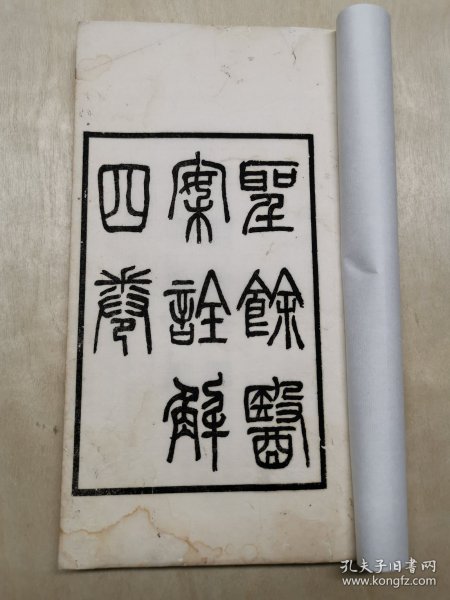 聖餘醫
案詮解
四卷
孔夫子旧书网
www.kongfz.com